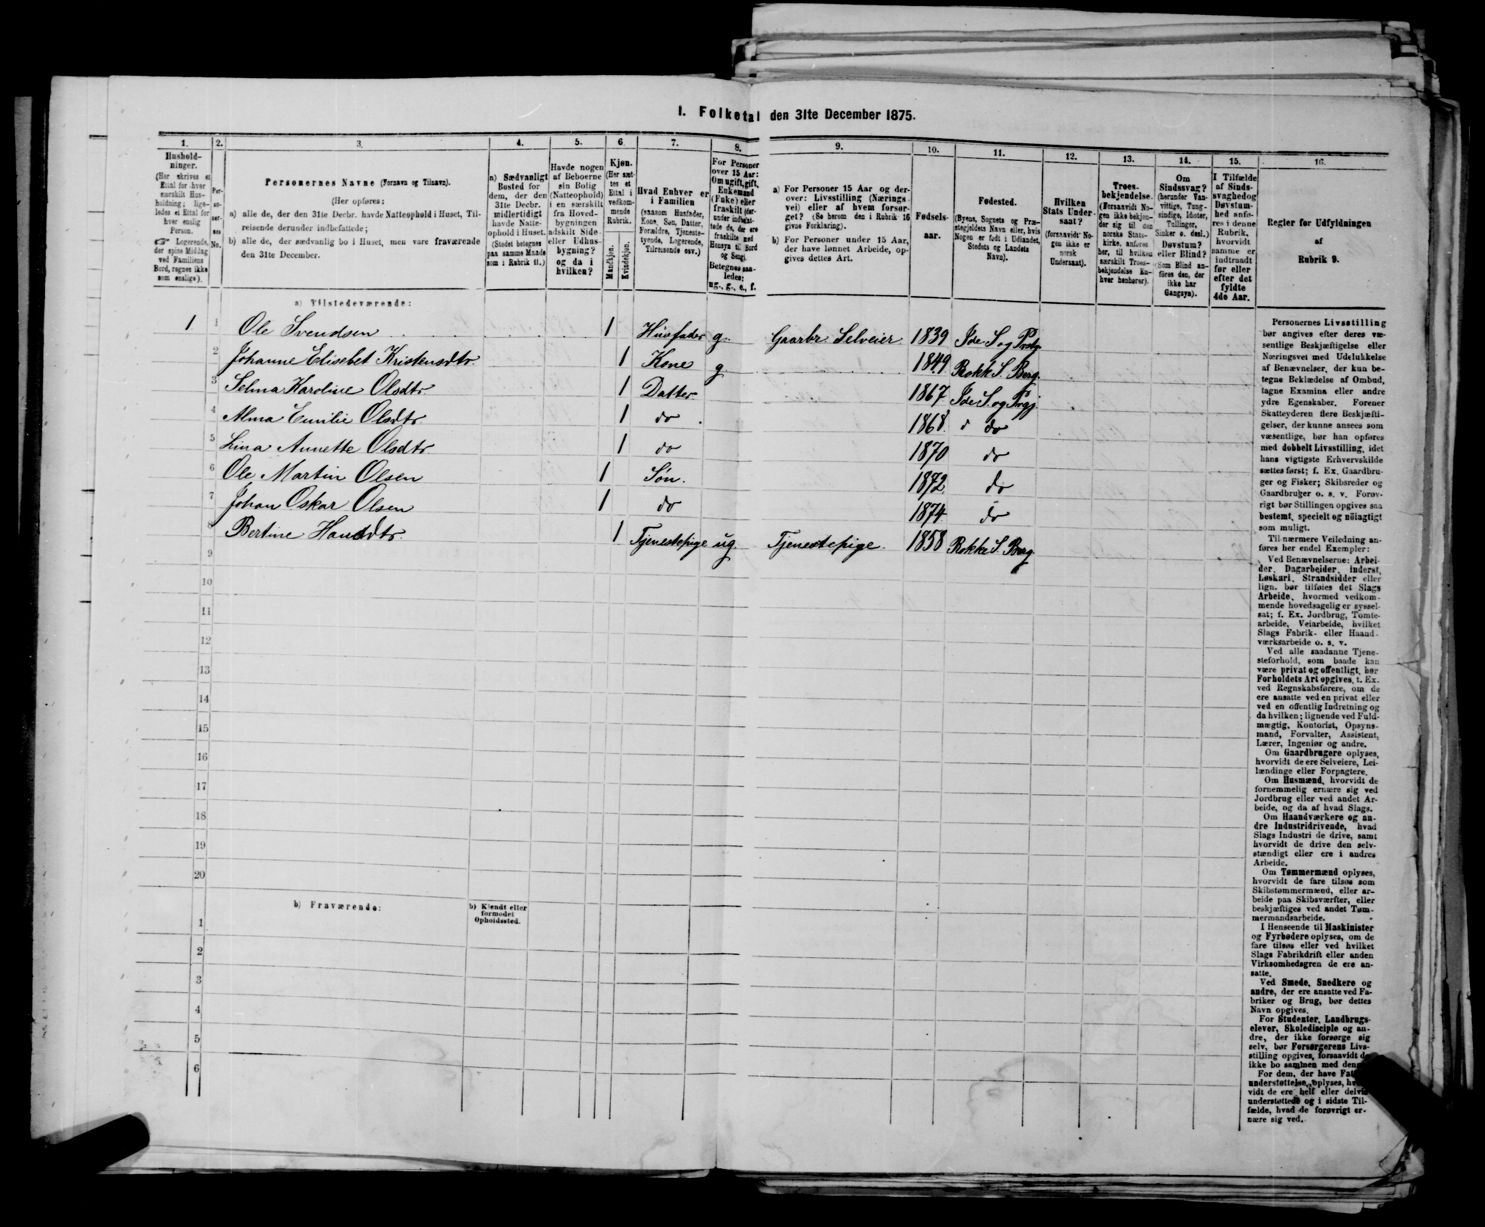 I. Folketal den 31te December 1875.
1. 2. 3. 4. 5. 6. 7. 8. 9. 10. 11. 12. 13. 14. 15. 16.
Hushold-
ninger.
(Her skrives et
Ettal for hver
særskilt Hus-
holdning; lige-
ledes et Ettal for
hver enslig
Person.
☞ Logerende,
der spise Middag
ved Familiens
Bord, regnes ikke
som enslige).
Per-
soner-
nes
No.
Personernes Navne (Fornavn og Tilnavn).
(Her opføres:
a) alle de, der den 31te Decbr. havde Natteophold i Huset, Til-
reisende derunder indbefattede;
b) alle de, der sædvanlig bo i Huset, men vare fraværende
den 31te December.
a) Sædvanligt
Bosted for
dem, der den
31te Decbr.
midlertidigt
havde Natte-
ophold i Huset.
(Stedet betegnes
paa samme Maade
som i Rubrik 11.)
Havde nogen
af Beboerne
sin Bolig
(Natteophold)
i en særskilt
fra Hoved-
bygningen
adskilt Side-
eller Udhus-
bygning?
og da i
hvilken?
Kjøn.
(Her sæt-
tes et
Ettal i
vedkom-
mende
Rubrik.
Mandkjøn.
Kvindekjøn.
Hvad Enhver er
i Familien
(saasom Husfader,
Kone, Søn, Datter,
Forældre, Tjeneste-
tyende, Logerende,
Tilreisende osv.)
For Personer
over 15 Aar:
Om ugift, gift,
Enkemand
(Enke) eller
fraskilt
ug., g., e., f.
a) For Personer 15 Aar og der-
over: Livsstilling (Nærings-
vei) eller af hvem forsør-
get? (Se herom den i Rubrik 16
givne Forklaring).
b) For Personer under 15 Aar,
der have lønnet Arbeide, op-
gives dettes Art.
Fødsels-
aar.
Fødested.
(Byens, Sognets og Præ-
stegjeldets Navn eller, hvis
Nogen er født i Udlandet,
Stedets og Landets
Navn).
Hvilken
Stats Under-
saat?
(forsaavidt No-
gen ikke er
norsk
Undersaat).
Troes-
bekjendelse.
(Forsaavidt No-
gen ikke bekjen-
der sig til den
norske Stats-
kirke, anføres
her, til hvilken
særskilt Troes-
bekjendelse En-
hver henhører).
Om
Sindssvag?
(herunder Van-
vittige, Tung-
sindige, Idioter,
Tullinger,
Sinker o. desl.)
Døvstum?
eller Blind?
(Som Blind an-
føres den, der
ikke har
Gangsyn).
I Tilfælde
af Sinds-
svaghed og
Døvstum-
hed anfø-
res i denne
Rubrik,
hvorvidt
samme er
indtraadt
før eller
efter det
fyldte
4de Aar.
Regler for Udfyldningen
af
Rubrik 9.
a) Tilstedeværende:
1 1 Ole Svendsen 1 Husfader g. Gaardbr. Selveier 1839 Ide S. og Prstg.
2 Johanne Elisebet Kristensdtr 1 Kone g 1849 Rokke S. Berg.
3 Selma Karoline Olsdtr 1 Datter 1867 Ide S. og Prgj.
4 Alma Emilie Olsdtr 1 do 1868 do
5 Lina Annette Olsdtr 1 do 1870 do
6 Ole Martin Olsen 1 Søn. 1872 do
7 Johan Oskar Olsen 1 do 1874 do
8 Bertine Hansdtr. 1 Tjenestepige ug. Tjenestepige. 1858 Rokke S. Berg
9
10
11
12
13
14
15
16
17
18
19
20
b) Fraværende:
b) Kjendt eller
formodet
Opholdssted.
1
2
3
4
5
6
Personernes Livsstilling
bør angives efter deres væ-
sentlige Beskjæftigelse eller
Næringsvei med Udelukkelse
af Benævnelser, der kun be-
tegne Beklædelse af Ombud,
tagne Examina eller andre
ydre Egenskaber. Forener
Skatteyderen flere Beskjæfti-
gelser, der kunne ansees som
væsentlige, bør han opføres
med dobbelt Livsstilling, idet
hans vigtigste Erhvervskilde
sættes først; f. Ex. Gaardbru-
ger og Fisker; Skibsreder og
Gaardbruger o. s. v. Forøv-
rigt bør Stillingen opgives saa
bestemt, specielt og nöiagtigt
som muligt.
Til nærmere Veiledning an-
føres her endel Exempler:
Ved Benævnelserne: Arbei-
der, Dagarbeider, Inderst,
Løskarl, Strandsidder eller
lign. bør tilføies det Slags
Arbeide, hvormed vedkom-
mende hovedsagelig er syssel-
sat; f. Ex. Jordbrug, Tomte-
arbeide, Veiarbeide, hvilket
Slags Fabrik- eller Haand-
værksarbeide o. s. v.
Ved alle saadanne Tjene-
steforhold, som baade kan
være privat og offentligt, bør
Forholdets Art opgives, t. Ex.
ved Regnskabsførere, om de
ere ansatte ved en privat eller
ved en offentlig Indretning og
da hvilken; lignende ved Fuld-
mægtig, Kontorist, Opsyns-
mand, Forvalter, Assistent,
Lærer, Ingeniør og andre.
Om Gaardbrugere oplyses,
hvorvidt de ere Selveiere, Lei-
lændinge eller Forpagtere.
Om Husmænd, hvorvidt de
fornemmelig ernære sig ved
Jordbrug eller ved andet Ar-
beide, og da af hvad Slags.
Om Haandværkere og an-
dre Industridrivende, hvad
Slags Industri de drive, samt
hvorvidt de drive den selv-
stændigt eller ere i andres
Arbeide.
Om Tømmermænd oplyses,
hvorvidt de fare tilsøs som
Skibstømmermænd, eller ar-
beide paa Skibsværfter, eller
beskjæftiges ved andet Tøm-
mermandsarbeide.
I Henseende til Maskinister
og Fyrbødere oplyses, om de
fare tilsøs eller ved hvilket
Slags Fabrikdrift eller anden
Virksomhedsgren de ere an-
satte.
Ved Smede, Snedkere og
andre, der ere ansatte ved Fa-
briker og Brug, bør dettes
Navn opgives.
For Studenter, Landbrugs-
elever, Skoledisciple og an-
dre, der ikke forsørge sig
selv, bør Forsørgerens Livs-
stilling opgives, forsaavidt de
ikke bo sammen med denne.
For dem, der have
understøttelse, oplyses,
vidt de ere helt eller
understøttede og i sidste Til-
fælde, hvad de forøvrigt er-
nære sig ved.